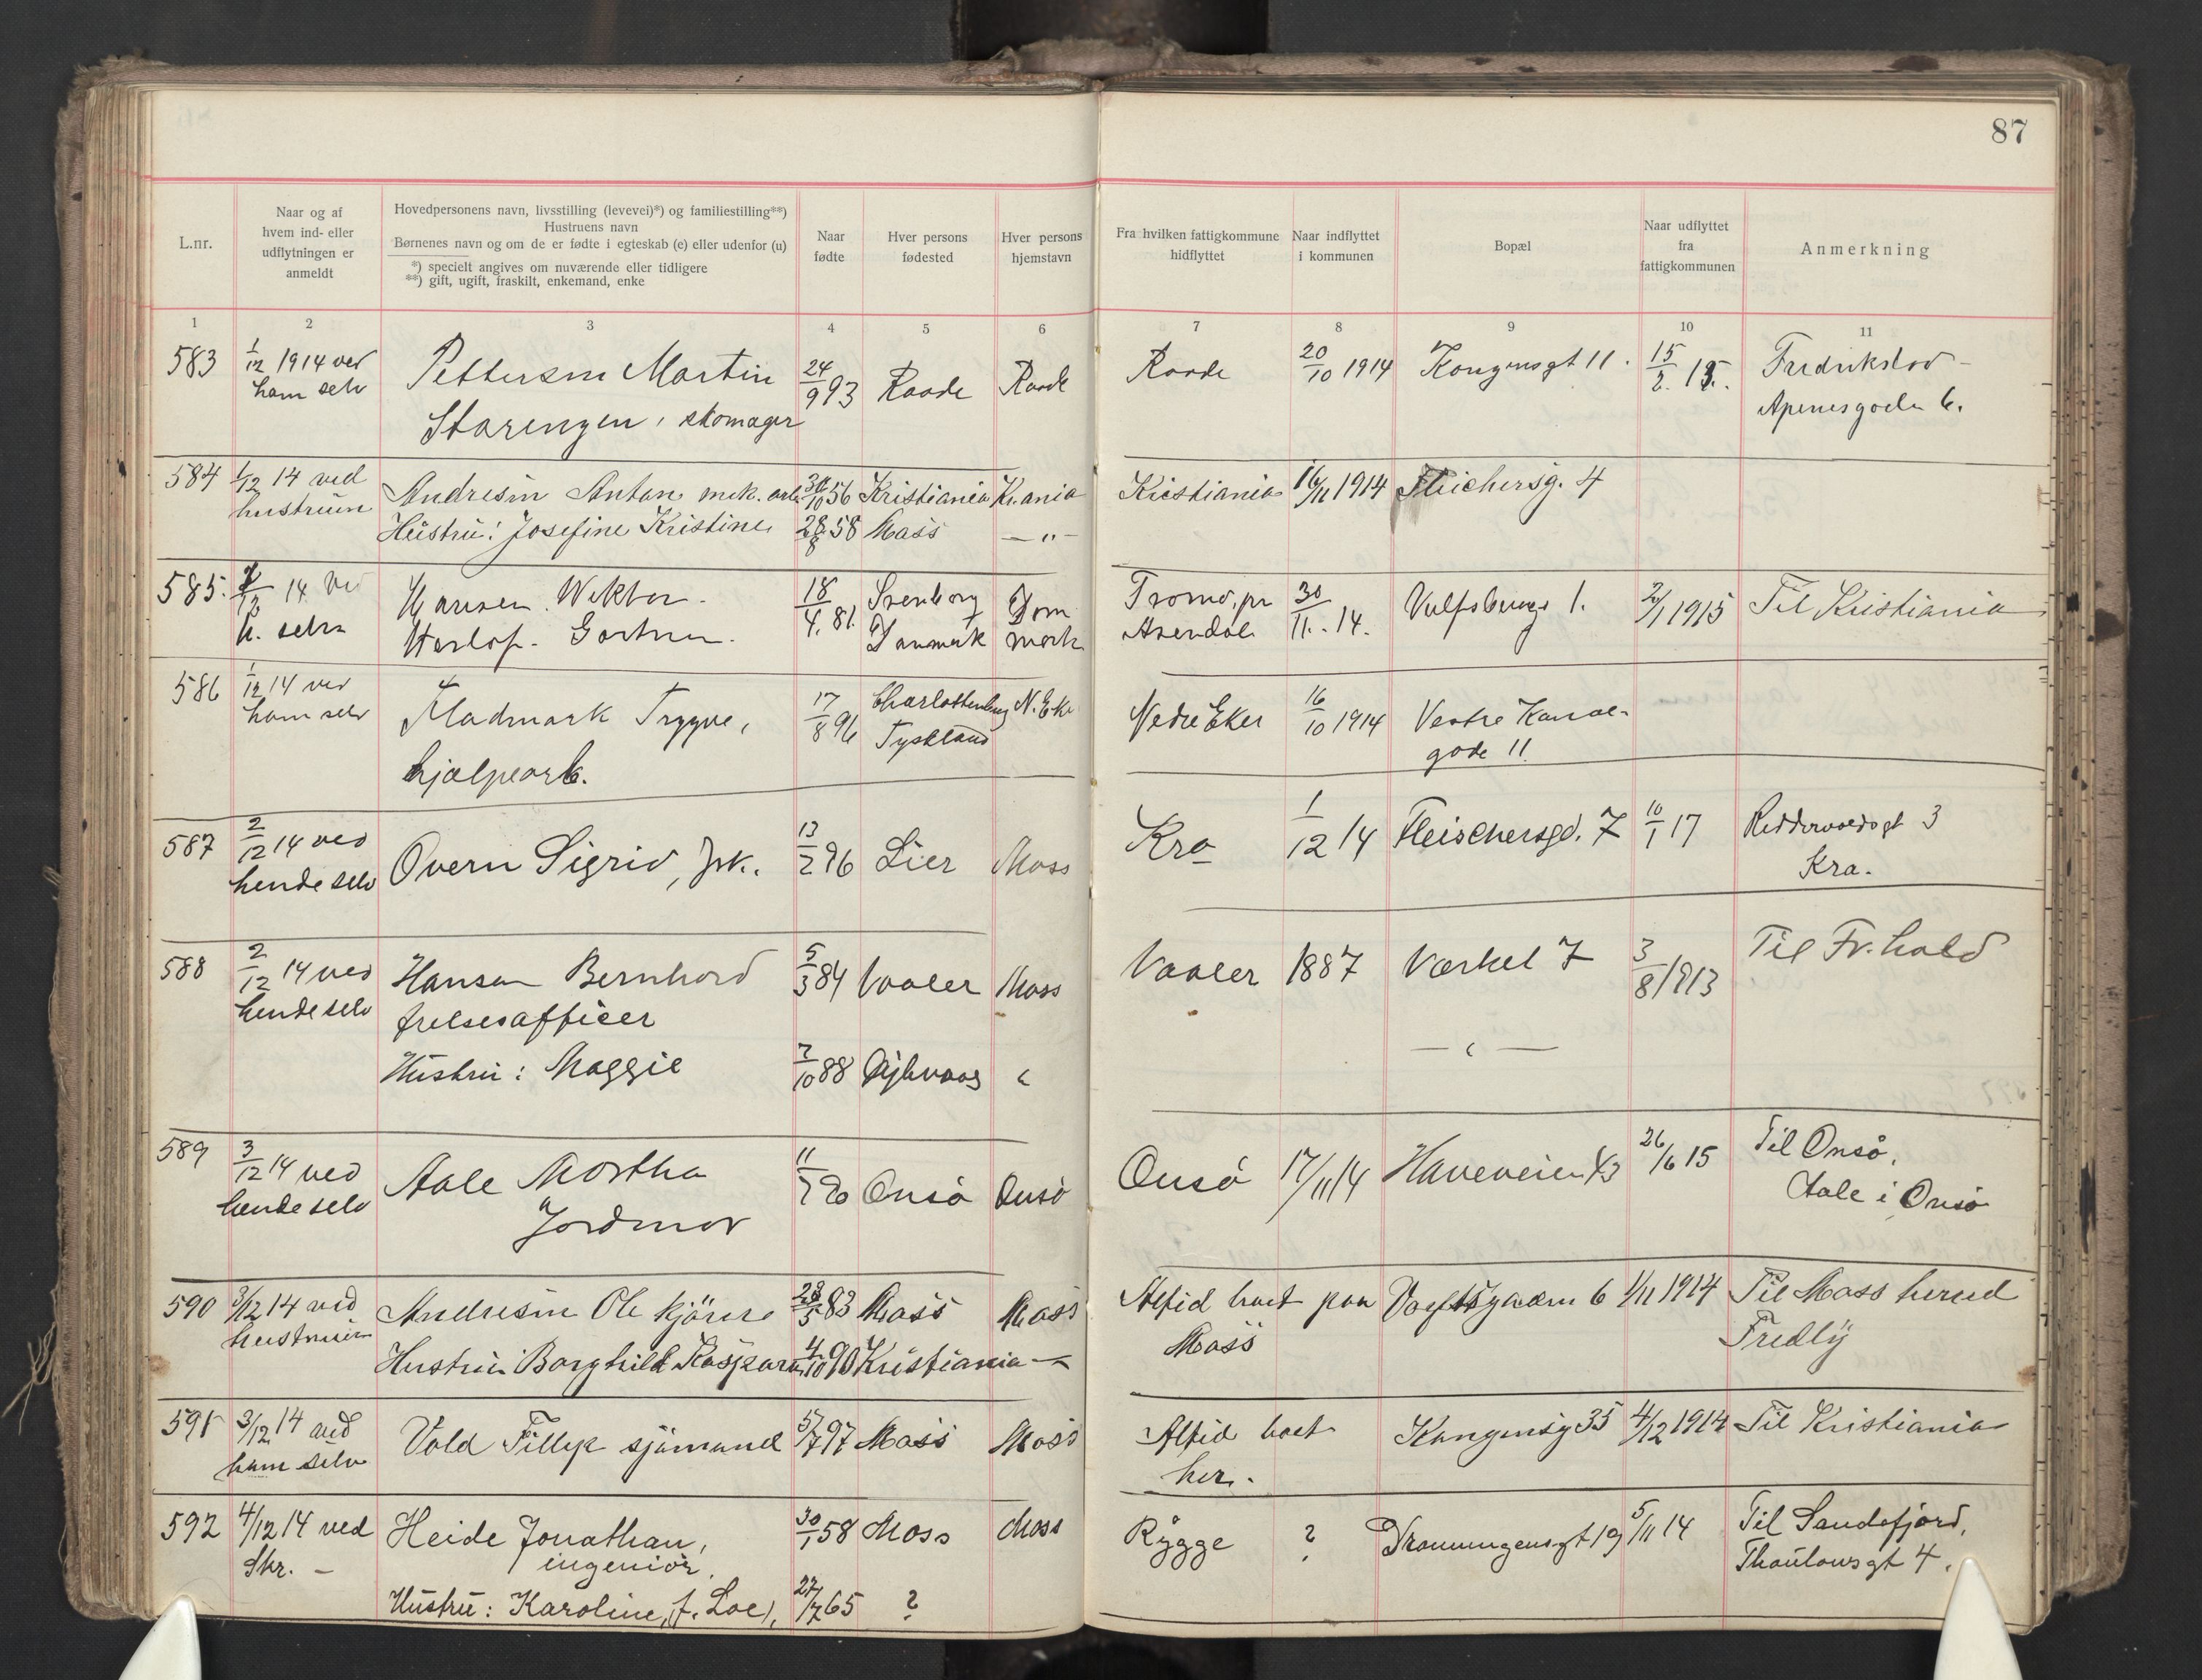 87
L.nr.
Naar og af
hvem ind- eller
udflytningen er
anmeldt
Hovedpersonens navn, livsstilling (levevei)*) og familiestilling**)
Hustruens navn
Børnenes navn og om de er fødte i egteskab (e) eller udenfor (u)
*) specielt angives om nuværende eller tidligere
**) gift, ugift, fraskilt, enkemand, enke
Naar
fødte
Hver persons
fødested
Hver persons
hjemstavn
Fra hvilken fattigkommune
hidflyttet
Naar indflyttet
i kommunen
Bopæl
Naar udflyttet
fra
fattigkommunen
Anmerkning
1 2 3 4 5 6 7 8 9 10 11
583 1/12 1914 ved Pettersen Martin 24/9 93 Raade Raade Raade 20/10 1914 Kongensgt 11. 15/2. 15. Fredrikstad -
ham selv Starengen, skomager Apenesgaden 6.
584 1/12 14 ved Andresen Anton mek. arb. 30/10 56 Kristiania Kr.ania Kristiania 16/11 1914 Fleichersg. 4
hustruen Hustru: Josefine Kristine 28/8 58 Moss — " —
585. 1/12 14 ved Hansen Wiktor 18/4. 81. Svenborg Dan Tromö, pr 30/11. 14. Vulfsbergs 1. 2/1 1915 Til Kristiania
h. selv Gartner. Danmark mark Arendal
586 1/12 14 ved Fladmark Trygve, 17/8 96 Charlottenburg N. Eker Nedre Eker 16/10 1914 Vestre Kanal-
ham selv hjælpearb. Tyskland gade 11.
587 2/12 14 ved Overn Sigrid, frk. 13/2 96 Lier Moss Kra 1/12 14 Fleischersgd. 7 10/1 17 Reddervoldsgt 3
hende selv Kra.
588 2/12 14 ved Hansen Bernhard 5/3 84 Vaaler Moss Vaaler 1887 Værket 7 3/8 1913 Til Fr.hald
hende selv frelsesofficer
Hustru: Maggie 7/10 88 Dybvaag " — " —
589 3/12 14 ved Aale Martha 11/7 90 Onsö Onsö Onsö 17/11 14 Haveveien 43 26/6 15 Til Onsö,
hende selv Jordmor Aale i Onsö
590 3/12 14 ved Andresen Ole kjörer 28/5 83 Moss Moss Altid boet paa Vogtsgaden 6 1/11 1914 Til Moss herred
hustruen Hustru Borghild Kaspara 4/10 90 Kristiania — " — Moss Fredly
591 3/12 14 ved Vold Fillip sjömand 5/7 97 Moss Moss Altid boet Kongensg 35 4/12 1914 Til Kristiania
ham selv her.
592 4/12 14 ved Heide Jonathan, 30/1 58 Moss Moss Rygge ? Dronningensgt 19 5/11 14 Til Sandefjord,
Skr. - ingeniör. Thaulowsgt 4.
Hustru: Karoline, (f. Loe), 27/7 65 ?